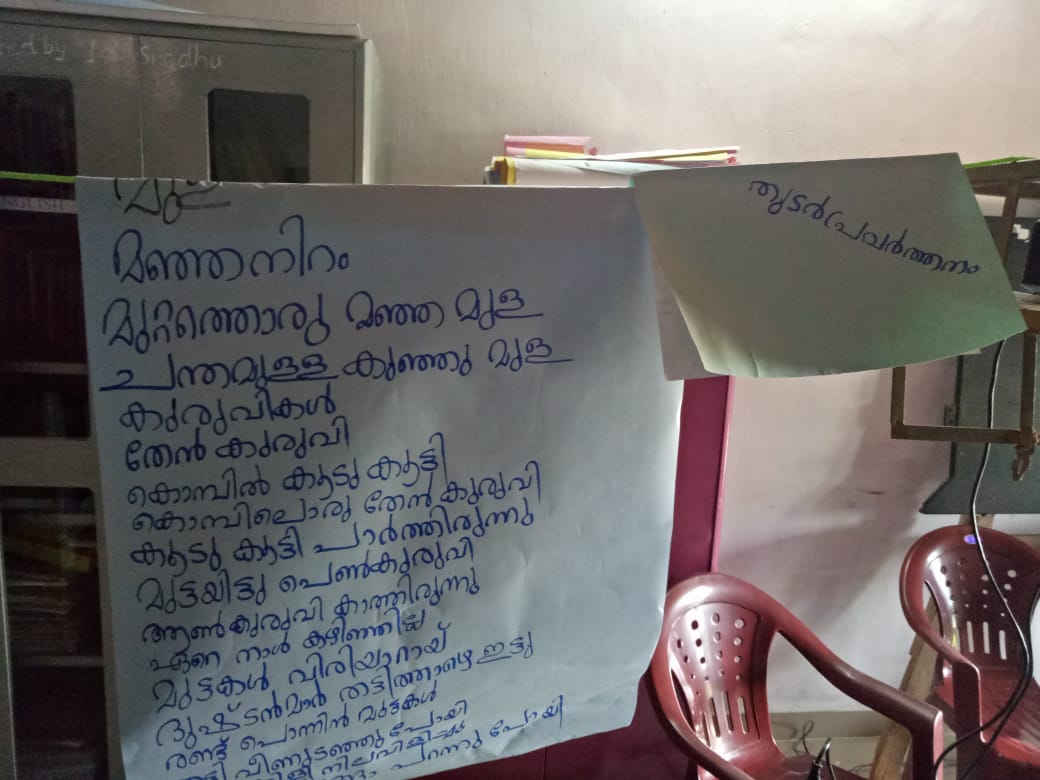 മുള
മഞ്ഞനിറം
മുറ്റത്തൊരു മഞ്ഞ മുള
ചന്തമുള്ള കുഞ്ഞു മുള
കുരുവികൾ
തേൻ കുരുവി
കൊമ്പിൽ കൂടു കൂട്ടി
കൊമ്പിലൊരു തേൻ കുരുവി
കൂടു കൂട്ടി പാർത്തിരുന്നു
മുട്ടയിട്ടു പെൺകുരുവി
ആൺകുരുവി കാത്തിരുന്നു
ഏറെ നാൾ കഴിഞ്ഞില്ല
മുട്ടകൾ വിരിയാറായ്
ദുഷ്ടൻമാർ തട്ടിത്താഴെ ഇട്ടു
രണ്ട് പൊന്നിൻ മുട്ടകൾ
വീണുടഞ്ഞുപോയി
പറന്നു പോയി
തുടർപ്രവർത്തനം
Sindhu
ENGLISH